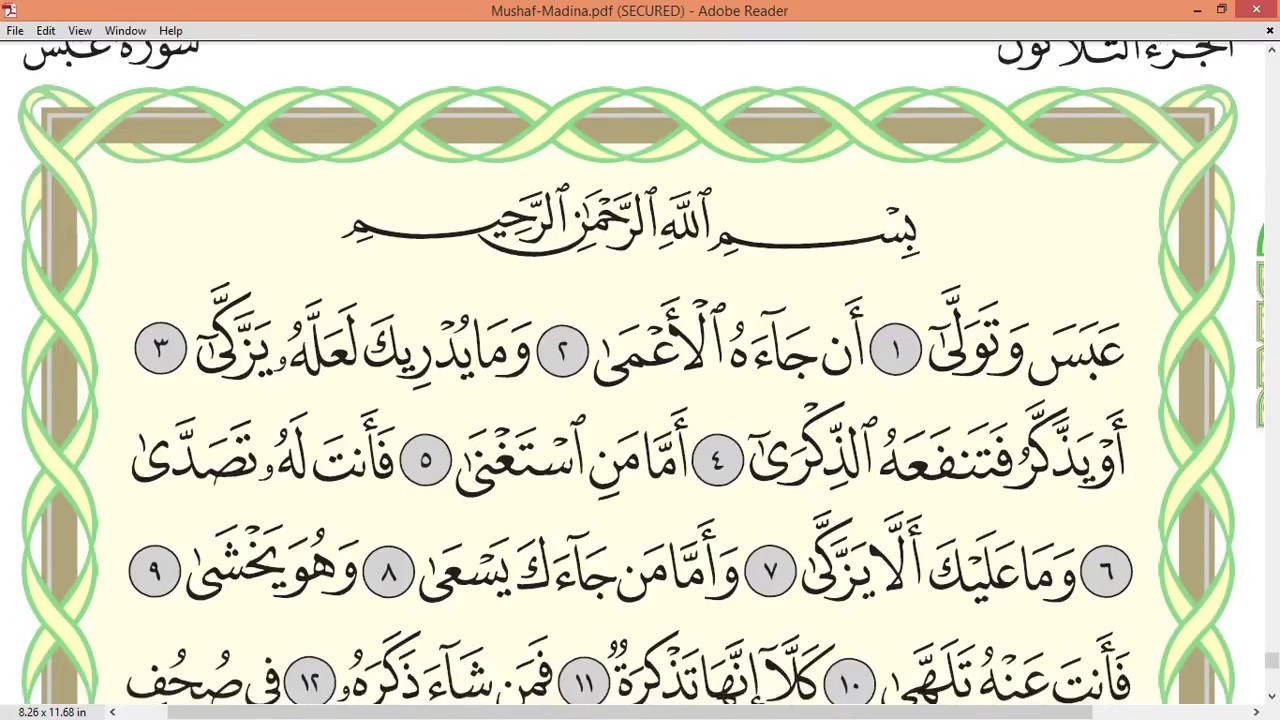 Mushaf-Madina.pdf (SECURED) - Adobe Reader
File Edit View Window Help
الجزء الثلاثون سورة عبس
بِسْمِ ٱللَّهِ ٱلرَّحْمَٰنِ ٱلرَّحِيمِ
عَبَسَ وَتَوَلَّىٰٓ ١ أَن جَآءَهُ ٱلْأَعْمَىٰ ٢ وَمَا يُدْرِيكَ لَعَلَّهُۥ يَزَّكَّىٰٓ ٣
أَوْ يَذَّكَّرُ فَتَنفَعَهُ ٱلذِّكْرَىٰٓ ٤ أَمَّا مَنِ ٱسْتَغْنَىٰ ٥ فَأَنتَ لَهُۥ تَصَدَّىٰ
٦ وَمَا عَلَيْكَ أَلَّا يَزَّكَّىٰ ٧ وَأَمَّا مَن جَآءَكَ يَسْعَىٰ ٨ وَهُوَ يَخْشَىٰ ٩
فَأَنتَ عَنْهُ تَلَهَّىٰ ١٠ كَلَّآ إِنَّهَا تَذْكِرَةٌ ١١ فَمَن شَآءَ ذَكَرَهُۥ ١٢ فِى صُحُفٍ
8.26 x 11.68 in